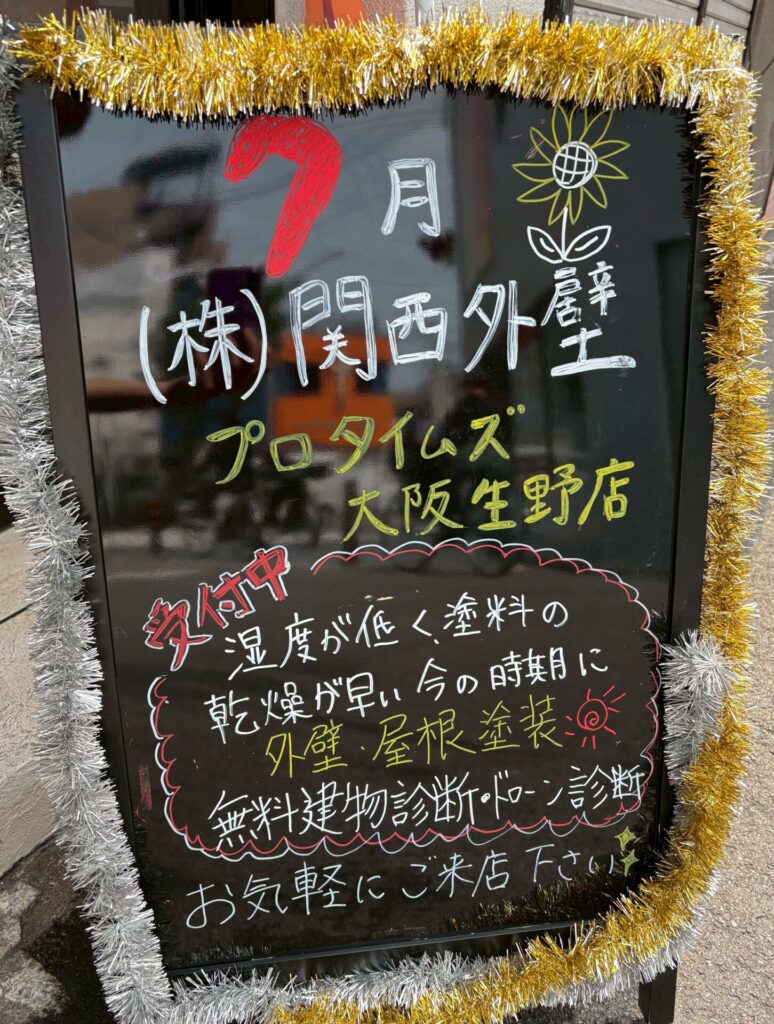 7月
(株)関西外壁
プロタイムズ
大阪生野店
受付中
湿度が低く、塗料の
乾燥が早い今の時期に
外壁・屋根塗装
無料建物診断・ドローン診断
お気軽にご来店下さい